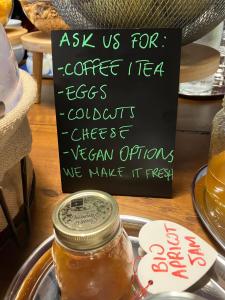 ASK US FOR:
-COFFEE & TEA
-EGGS
-COLDCUTS
-CHEESE
-VEGAN OPTIONS
WE MAKE IT FRESH
BIO
APRICOT
JAM